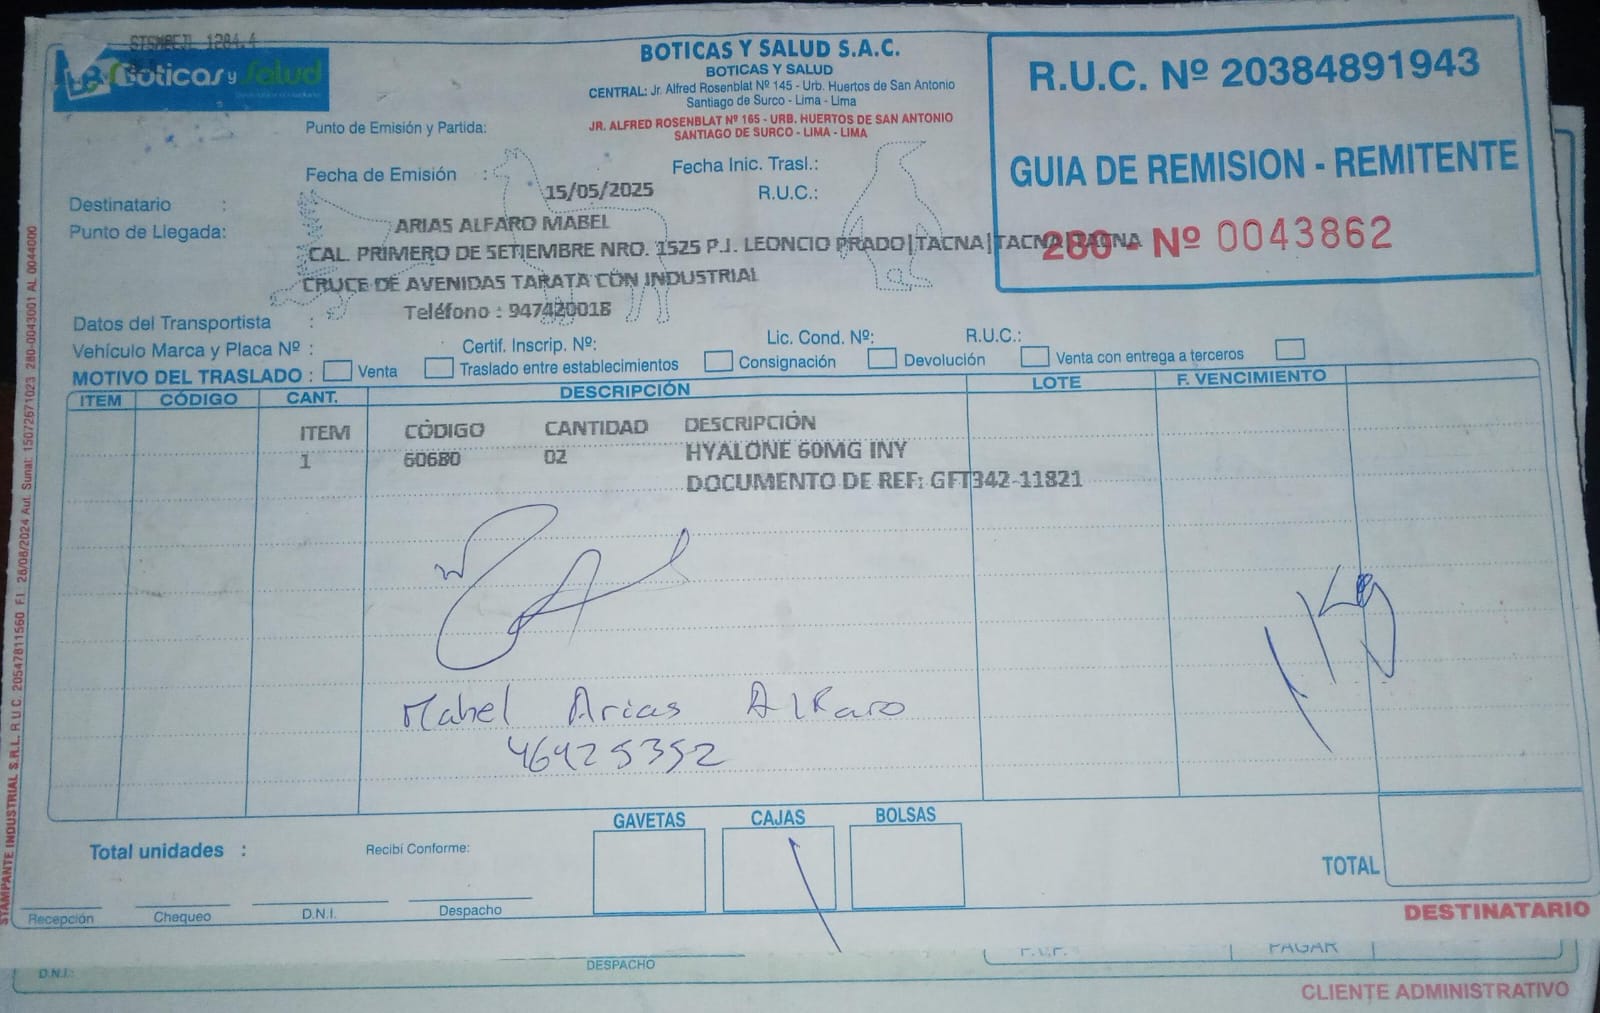 STSMBEJL 1284.4
Boticas y Salud
BOTICAS Y SALUD S.A.C.
BOTICAS Y SALUD
CENTRAL: Jr. Alfred Rosenblat Nº 145 - Urb. Huertos de San Antonio
Santiago de Surco - Lima - Lima
Punto de Emisión y Partida:
JR. ALFRED ROSENBLAT Nº 165 - URB. HUERTOS DE SAN ANTONIO
SANTIAGO DE SURCO - LIMA - LIMA
R.U.C. Nº 20384891943
GUIA DE REMISION - REMITENTE
280 - Nº 0043862
Fecha de Emisión : 15/05/2025
Fecha Inic. Trasl.:
R.U.C.:
Destinatario : ARIAS ALFARO MABEL
Punto de Llegada: CAL. PRIMERO DE SETIEMBRE NRO. 1525 P.J. LEONCIO PRADO|TACNA|TACNA|TACNA
CRUCE DE AVENIDAS TARATA CON INDUSTRIAL
Teléfono : 947420018
Datos del Transportista :
Vehículo Marca y Placa Nº : Certif. Inscrip. Nº: Lic. Cond. Nº: R.U.C.:
MOTIVO DEL TRASLADO : Venta Traslado entre establecimientos Consignación Devolución Venta con entrega a terceros
ITEM CÓDIGO CANT. DESCRIPCIÓN LOTE F. VENCIMIENTO
ITEM CÓDIGO CANTIDAD DESCRIPCIÓN
1 60680 02 HYALONE 60MG INY
DOCUMENTO DE REF: GFT342-11821
1 Kg
Mabel Arias Alfaro
46425352
GAVETAS CAJAS BOLSAS
Total unidades :
Recibí Conforme:
TOTAL
Recepción Chequeo D.N.I. Despacho
DESTINATARIO
STAMPANTE INDUSTRIAL S.R.L. R.U.C. 20547811560 F.I. 26/06/2024 Aut. Sunat: 15072671023 280-0043001 AL 0044000
PAGAR
D.N.I.: DESPACHO
CLIENTE ADMINISTRATIVO